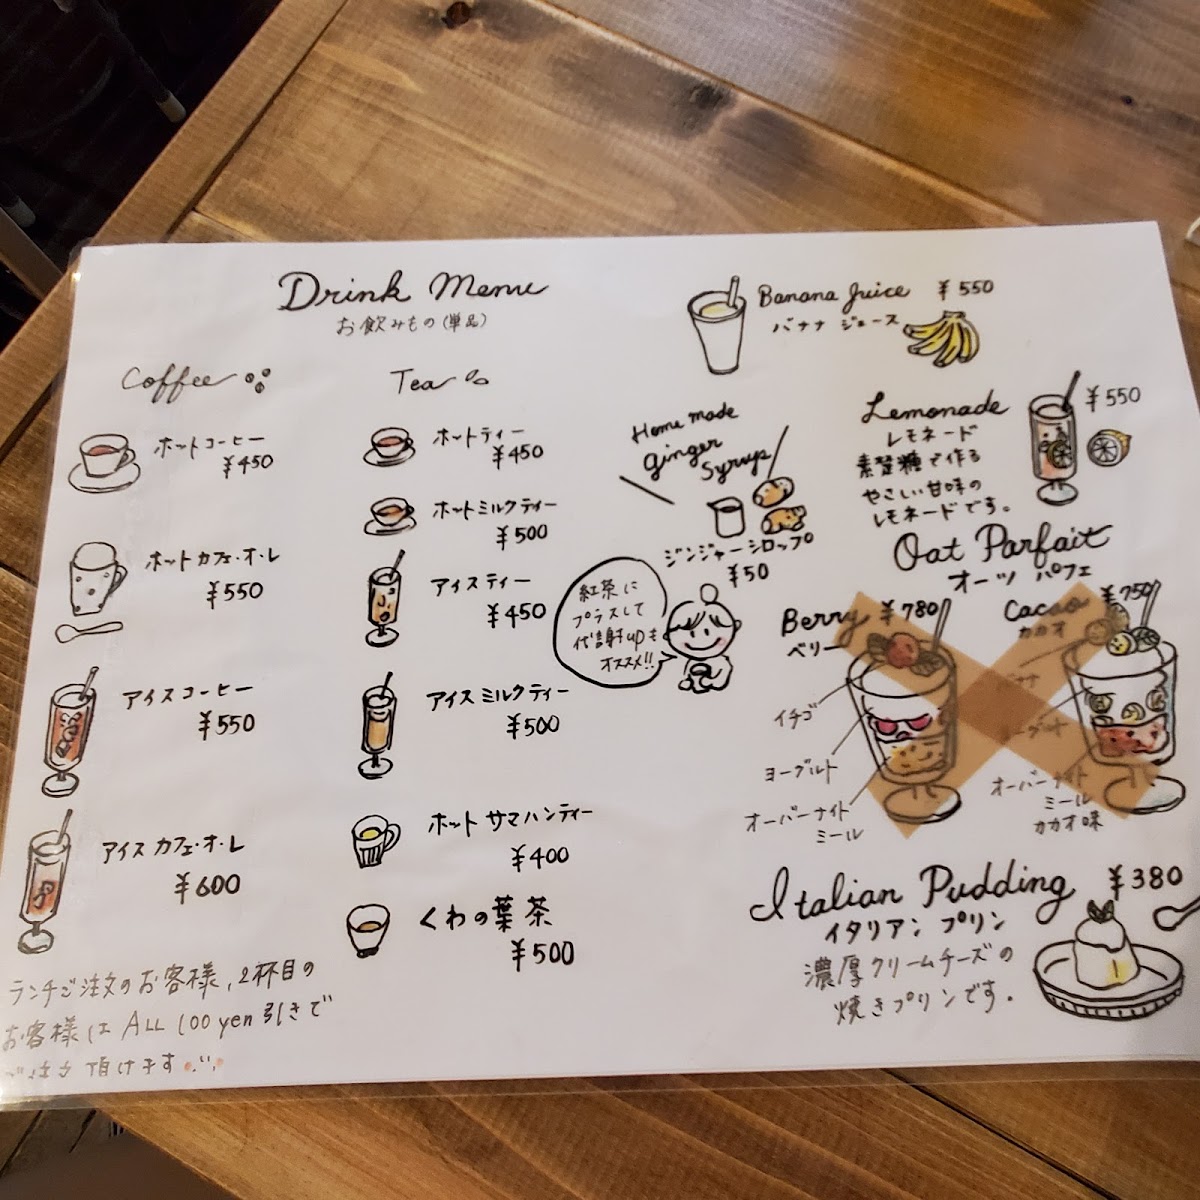 Drink Menu
お飲みもの(単品)
Coffee
ホットコーヒー
¥450
ホットカフェ・オ・レ
¥550
アイスコーヒー
¥550
アイスカフェ・オ・レ
¥600
ランチご注文のお客様、2杯目の
お客様は ALL 100yen引きで
頂けます
Tea
ホットティー
¥450
ホットミルクティー
¥500
アイスティー
¥450
アイスミルクティー
¥500
ホット サマハンティー
¥400
くわの葉茶
¥500
Home made
ginger
Syrup
ジンジャーシロップ
¥50
紅茶に
プラスして
代謝upも
オススメ!!
Banana Juice ¥550
バナナ ジュース
Lemonade ¥550
レモネード
素焚糖で作る
やさしい甘味の
レモネードです。
Oat Parfait
オーツ パフェ
Berry ¥780
ベリー
イチゴ
ヨーグルト
オーバーナイト
ミール
Cacao ¥750
カカオ
バナナ
ヨーグルト
オーバーナイト
ミール
カカオ味
Italian Pudding ¥380
イタリアン プリン
濃厚クリームチーズの
焼きプリンです。